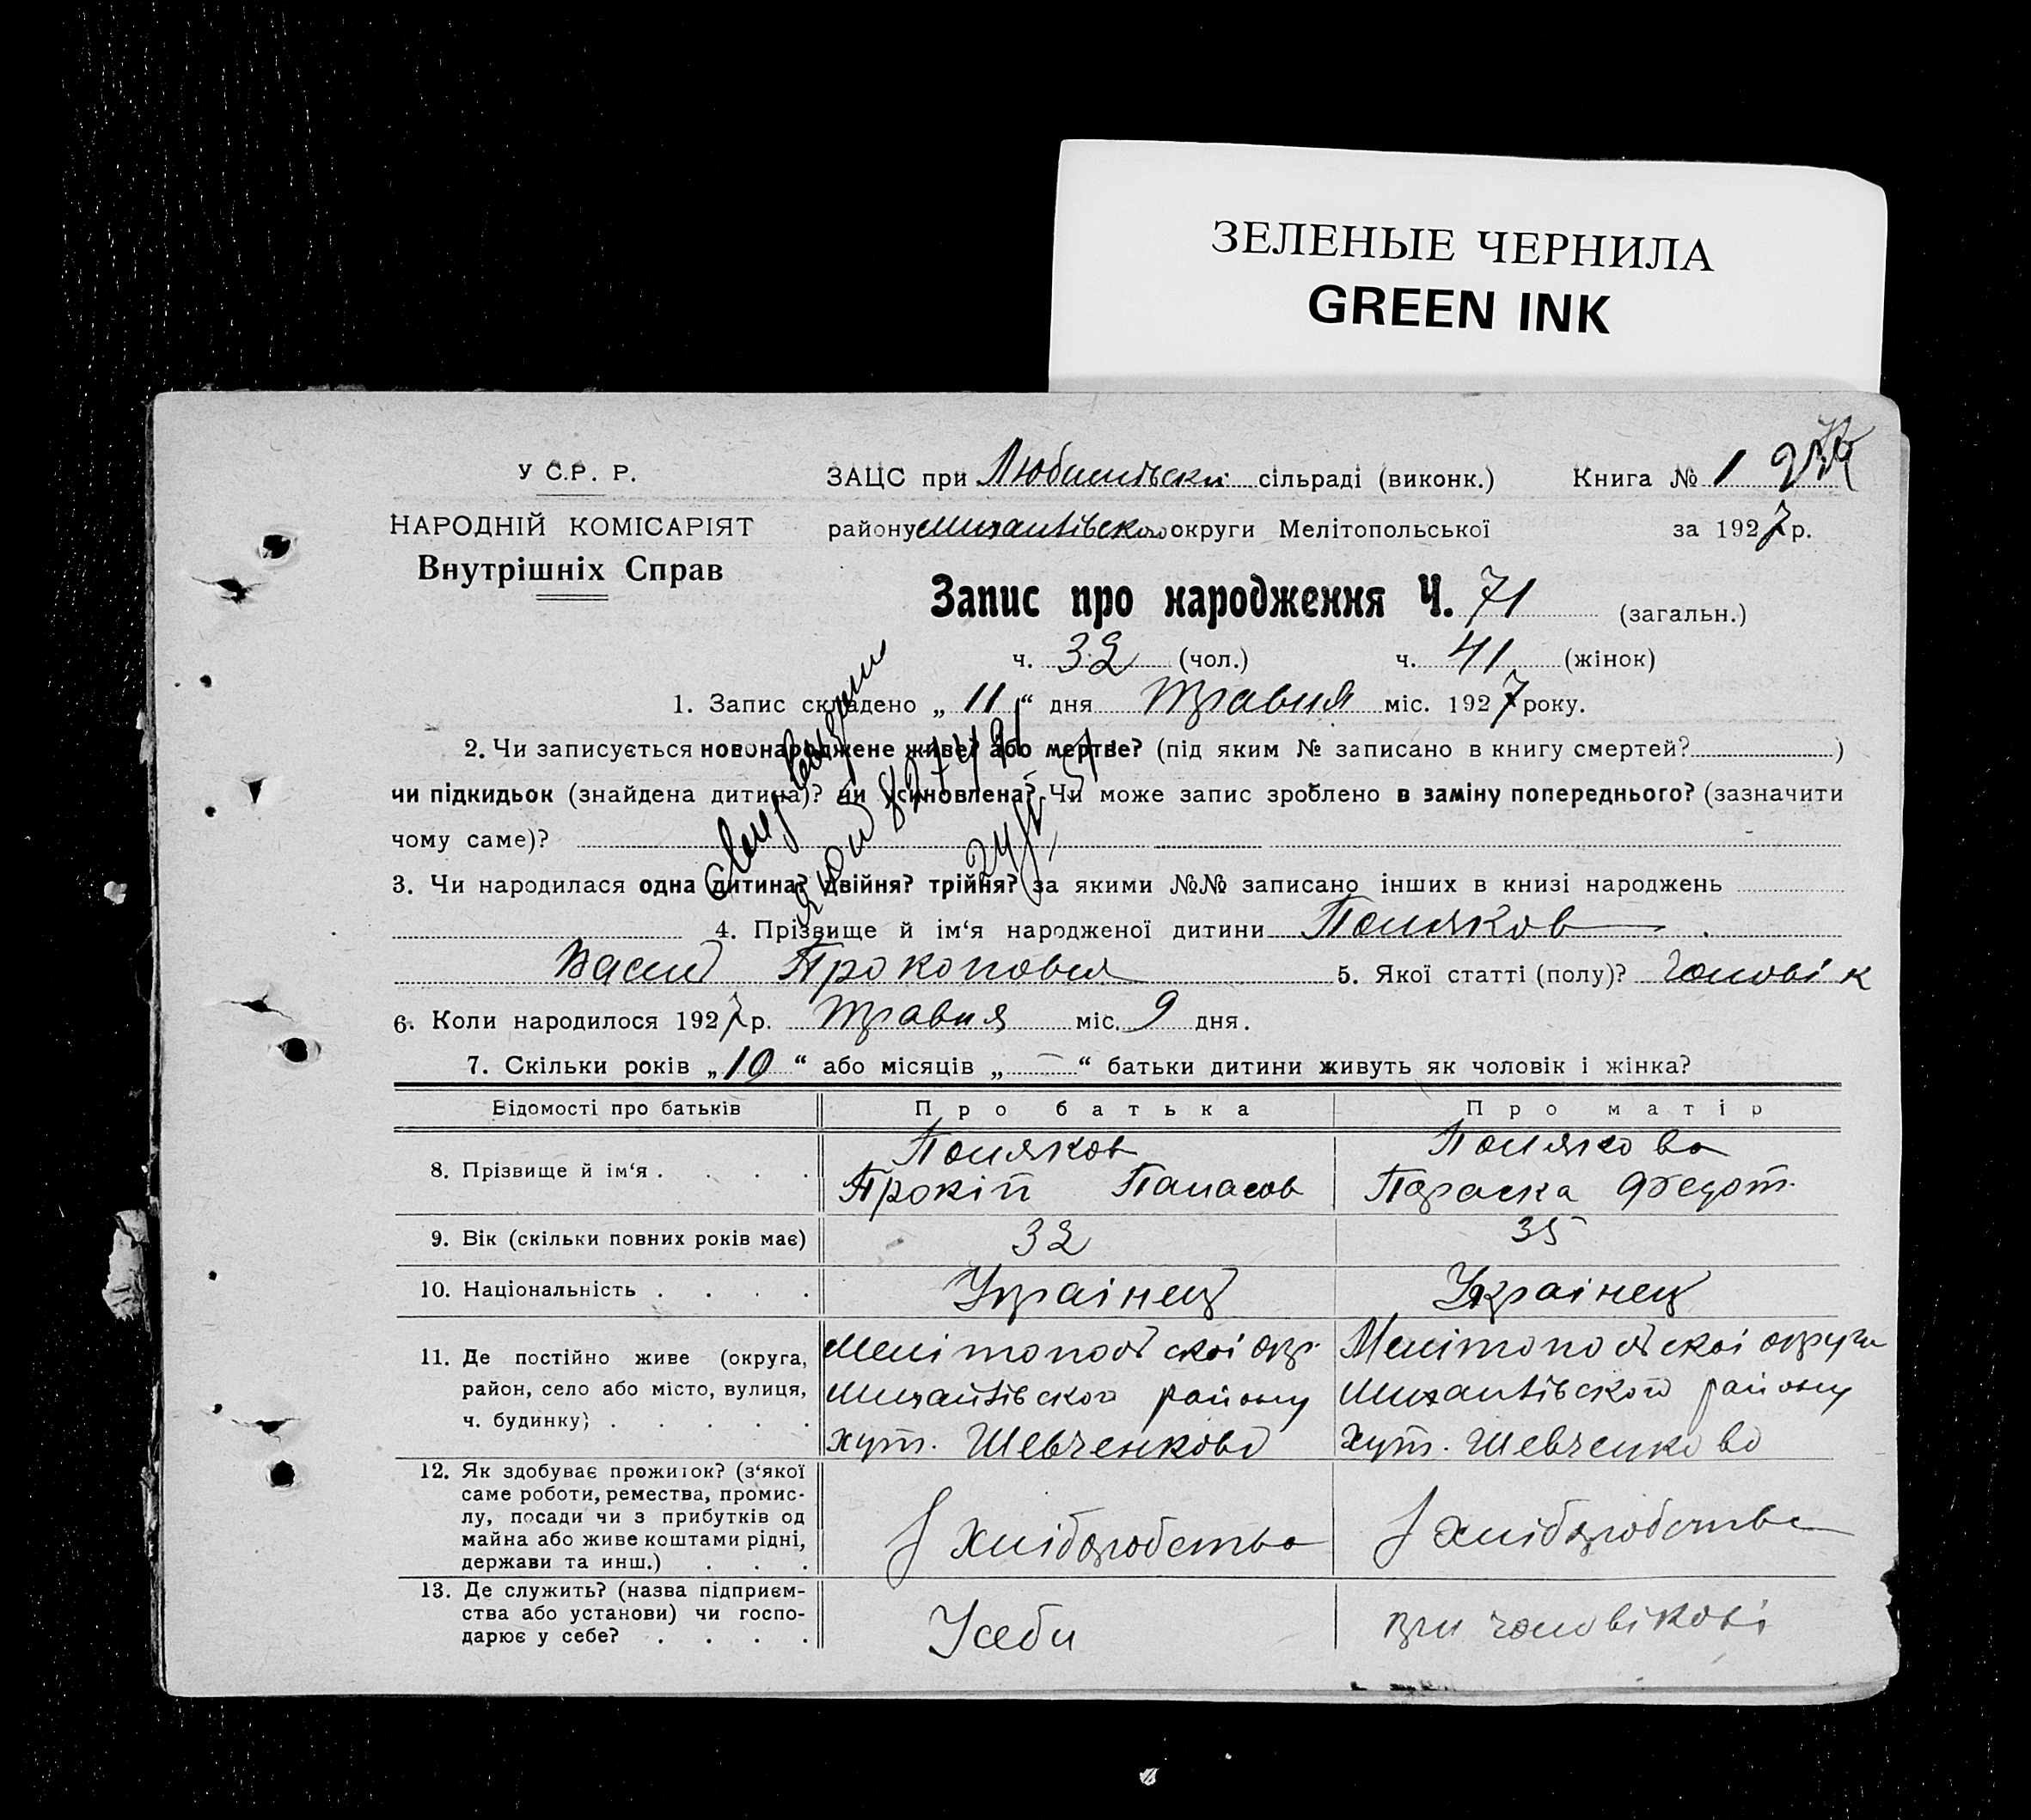 ЗЕЛЕНЫЕ ЧЕРНИЛА
GREEN INK
У С.Р. Р.
НАРОДНІЙ КОМІСАРІЯТ
Внутрішніх Справ
ЗАЦС при сільраді (виконк.) Книга № 1
району Михайлівского округи Мелітопольської за 1927 р.
Запис про народження Ч. 71 (загальн.)
ч. 32 (чол.) ч. 41 (жінок)
1. Запис складено „ 11 “ дня травня міс. 1927 року.
2. Чи записується новонароджене живе? або мертве? (під яким № записано в книгу смертей? )
чи підкидьок (знайдена дитина)? чи усиновлена? Чи може запис зроблено в заміну попереднього? (зазначити
чому саме)?
3. Чи народилася одна дитина? двійня? трійня? за якими №№ записано інших в книзі народжень
4. Прізвище й ім‘я народженої дитини Поляков
Васил Прокопович 5. Якої статті (полу)? чоловік
6. Коли народилося 1927 р. травня міс. 9 дня.
7. Скільки років „ 10 “ або місяців „ — “ батьки дитини живуть як чоловік і жінка?
Відомості про батьків Про батька Про матір
8. Прізвище й ім‘я . . . . Поляков Прокіп Панасов Полякова Параска Федот.
9. Вік (скільки повних років має) 32 35
10. Національність . . . . Украінец Украінец
11. Де постійно живе (округа, район, село або місто, вулиця, ч. будинку) . . . . . Мелітопольскоі окр. Михайлівского району хут. Шевченково Мелітопольскоі округи Михайлівского району хут. Шевченково
12. Як здобуває прожиток? (з‘якої саме роботи, ремества, промислу, посади чи з прибутків од майна або живе коштами рідні, держави та инш.) . . . З хліборобства З хліборобства
13. Де служить? (назва підприємства або установи) чи господарює у себе? . . . . У себи при чоловікові